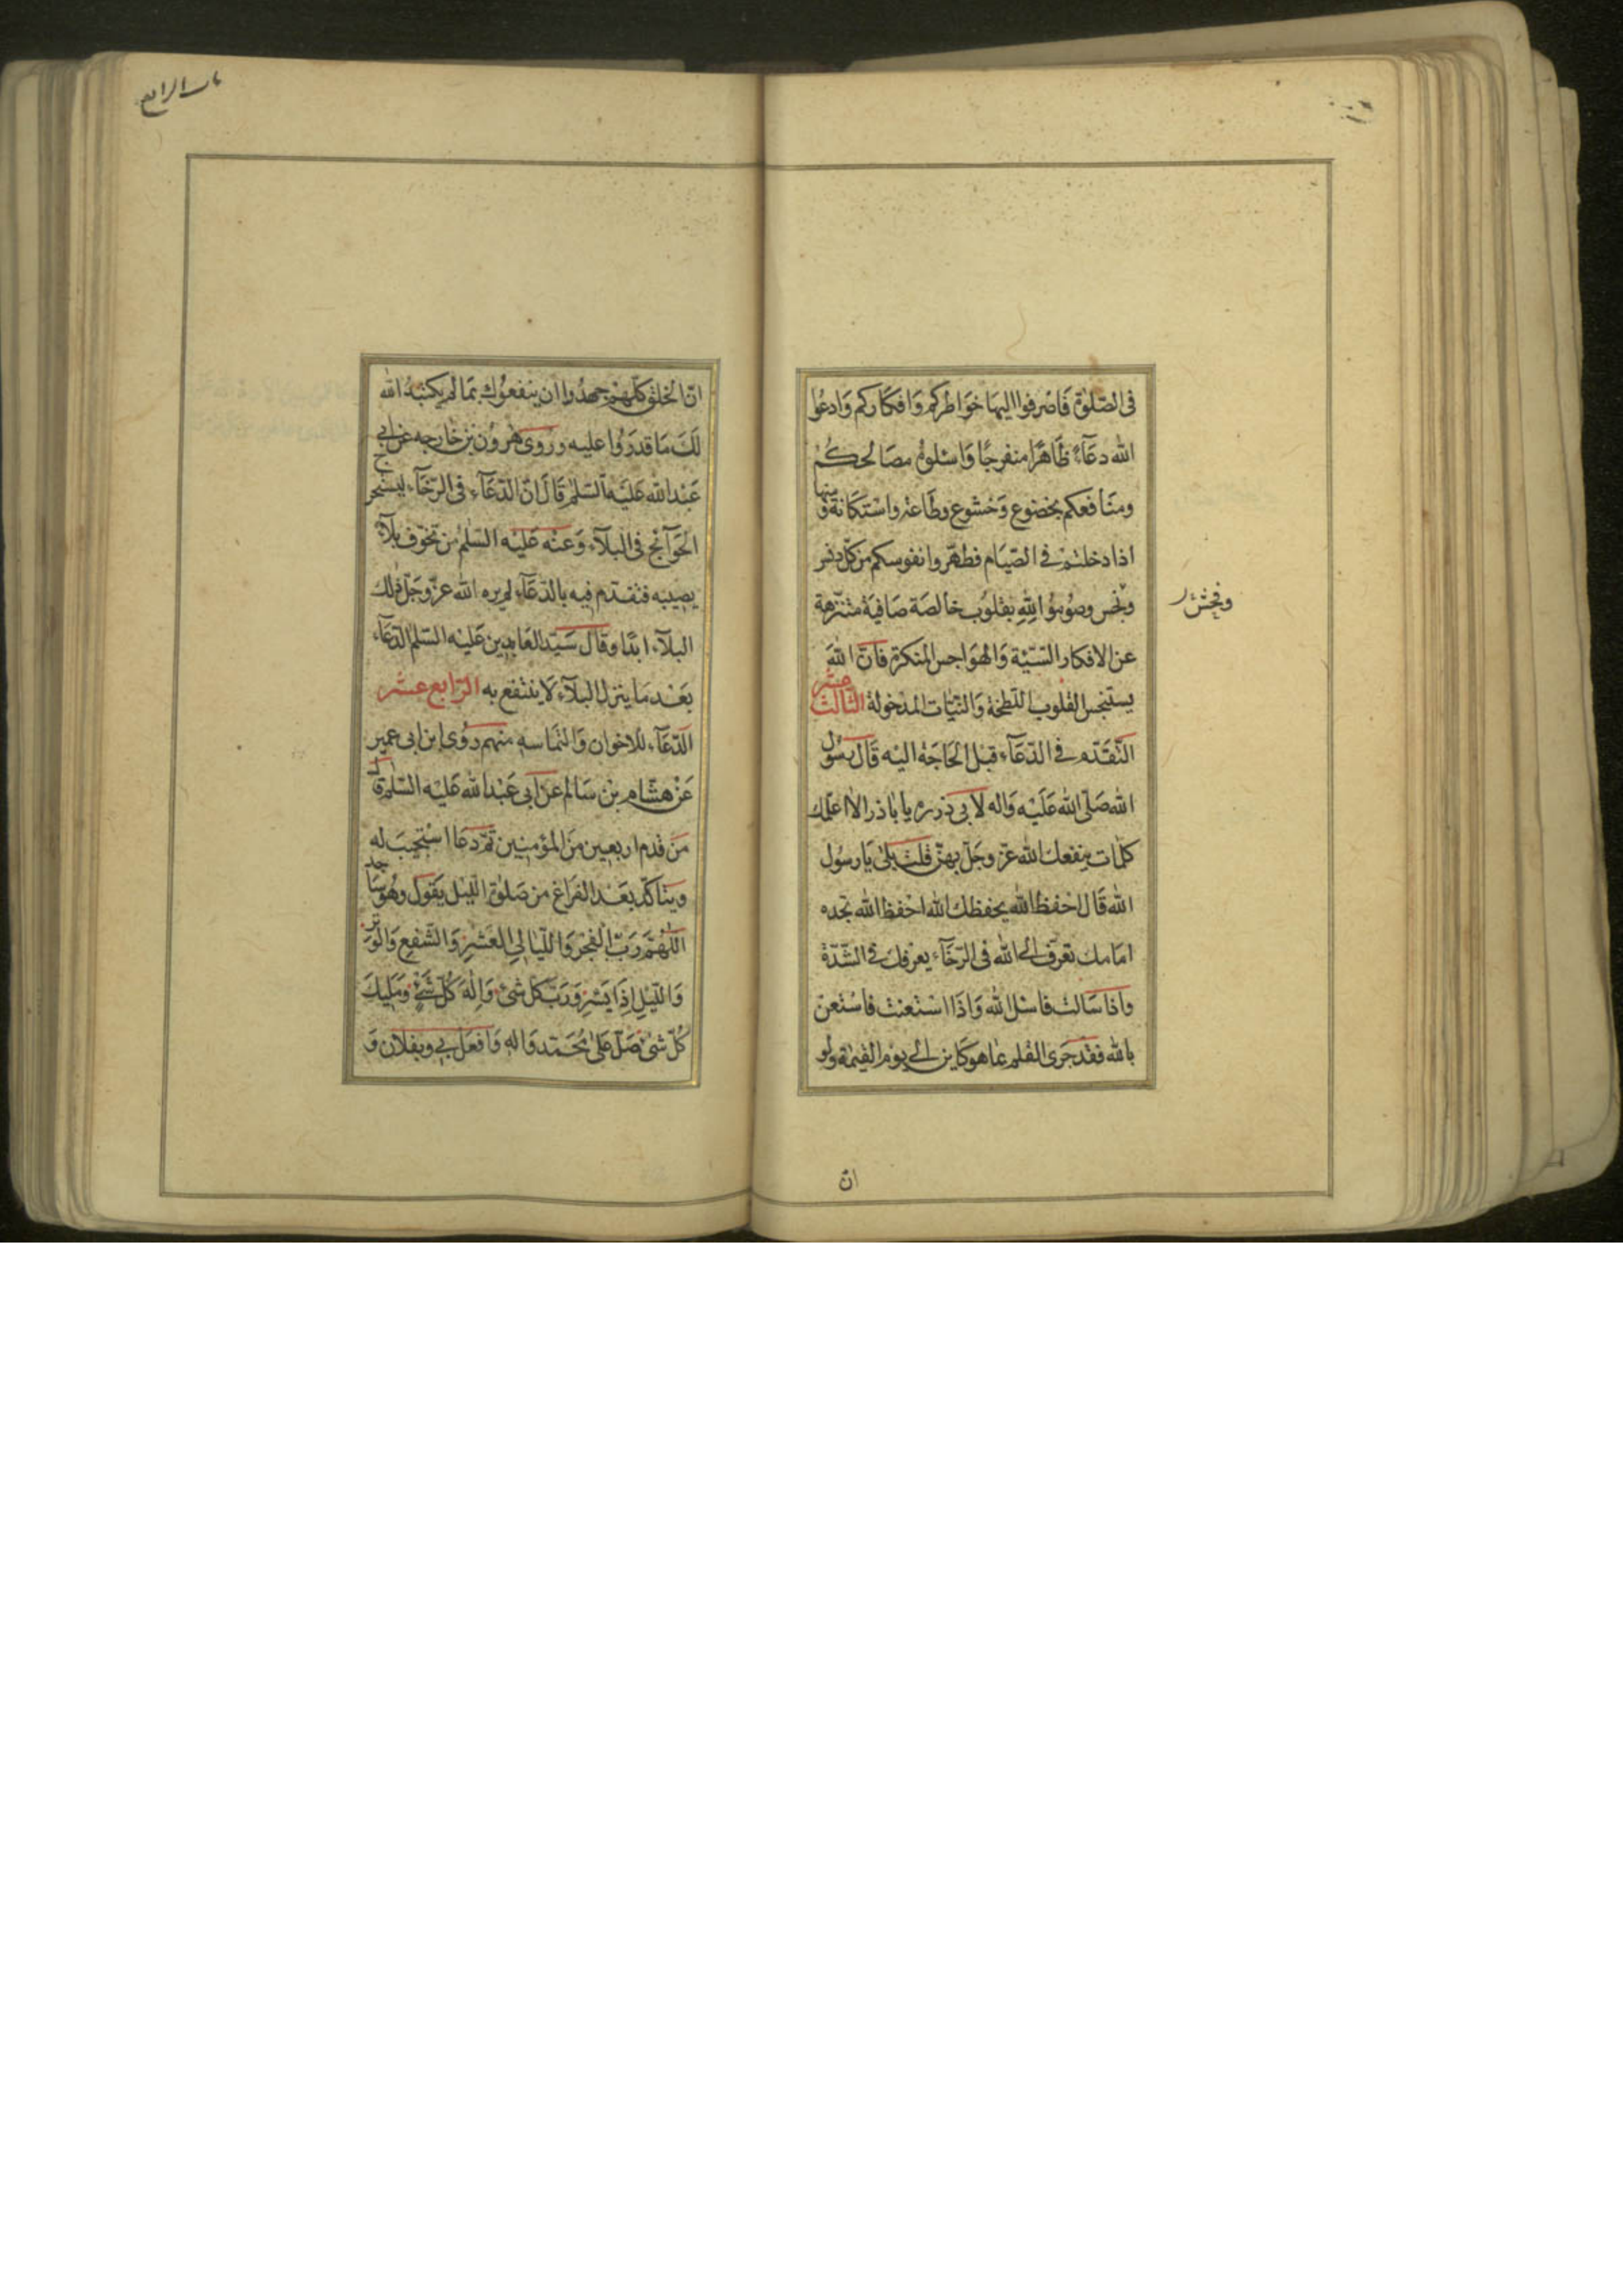 فى الصّلوة فَاصْرفوا اليهَا خوَاطركم وَافكاركم وَادعُوا
الله دعَآءً ظَاهرًا منفرجًا وَاسْئلوهُ مصَالحكُمْ
ومنَافعكم بخضوع وَخشوع وطَاعة واسْتكَانة ومنها
اذا دخلتمْ فى الصّيَام فطهّروا نفوسكم من كلّ دنس
ونجس وصُومُوا لِلّهِ بقلُوب خالصَة صَافيَة متنزّهة
وفحش
عن الافكار السّيّئة وَالهوَاجس المنكرة فانّ اللهَ
يستنجس القلوب اللطخة وَالنيّات المدخولة الثّالث عشر
التّقدّم فى الدّعَآء قبل الحَاجَة اليه قَال رسُول
الله صَلّى الله عَليْه وَاله لابى ذر ره يا باذر الا اعلمك
كلمَات ينفعك الله عزّ وجَلّ بهنّ قلت بلى يَا رسُول
الله قَال احْفظ الله يحفظك الله احْفظ الله تجده
امَامك تعرّف الى الله فى الرّخَآء يعرفك فى الشدّة
واذا سَالت فاسْئل الله وَاذَا اسْتعنت فاسْتعنْ
بالله فقد جَرى القلم بمَا هو كَاين الى يوم القيمة ولو
ان
باب الرابع
انّ الخلق كلّهمْ جهدُوا ان ينفعوُك بمَا لم يكتبْهُ الله
لَكَ مَا قدرَوُا عليه وروى هرون بن خارجه عن ابى
عَبْد الله عَليَه السّلم قَالَ انّ الدّعَآء فى الرّخَآء ليستخرج
الحَوَآئج فى البلآء وَعنه عَليْه السّلمُ من تخوّف بلآء
يصيبه فتقدّم فيه بالدّعَآء لم يره الله عزّ وَجَلّ ذلك
البلآء ابدًا وقال سَيّد العَابدين عَليْه السّلم الدّعَآء
بَعْد مَا ينزل البلآء لَا ينتفع به الرّابع عشر
الدّعَآء للاخوان وَالتمَاسه منهم روى ابن ابى عمير
عَنْ هشَام بنْ سَالم عَن ابى عَبْد الله عَليْه السّلم قال
مَن قدم اربعين منَ المؤمنين ثمّ دعَا اسْتجيبَ له
ويتاكّد بعْد الفرَاغ من صَلوة اللّيل يَقول وهُو سَاجد
اللّهُمّ رَبّ الفجْر وَاللّيَالى العَشْرِ وَالشّفعِ وَالوَترِ
وَاللّيلِ اِذَا يَسْرِ وَرَبّ كل شىء وَاِلهَ كُلّ شَىْءٍ وَمَليكَ
كُلّ شىء صَلّ عَلى مُحَمّد وَالهِ وَافعَل بى وبفلان وَ